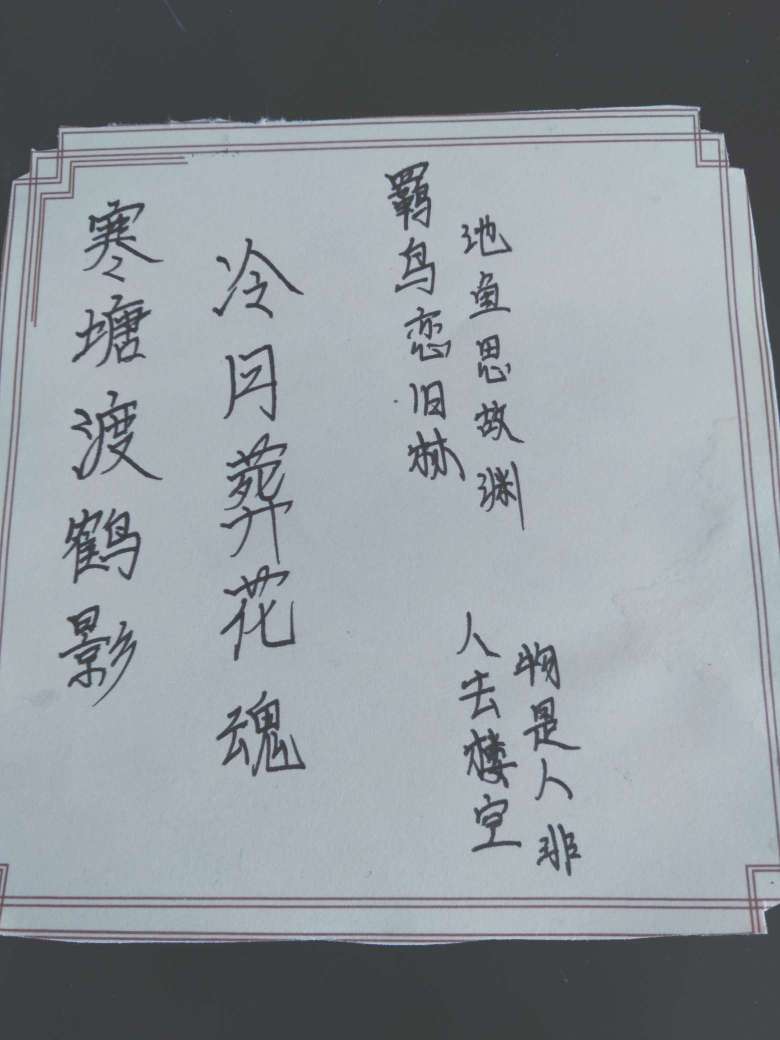 寒塘渡鹤影
冷月葬花魂
羁鸟恋旧林
池鱼思故渊
人去楼空
物是人非